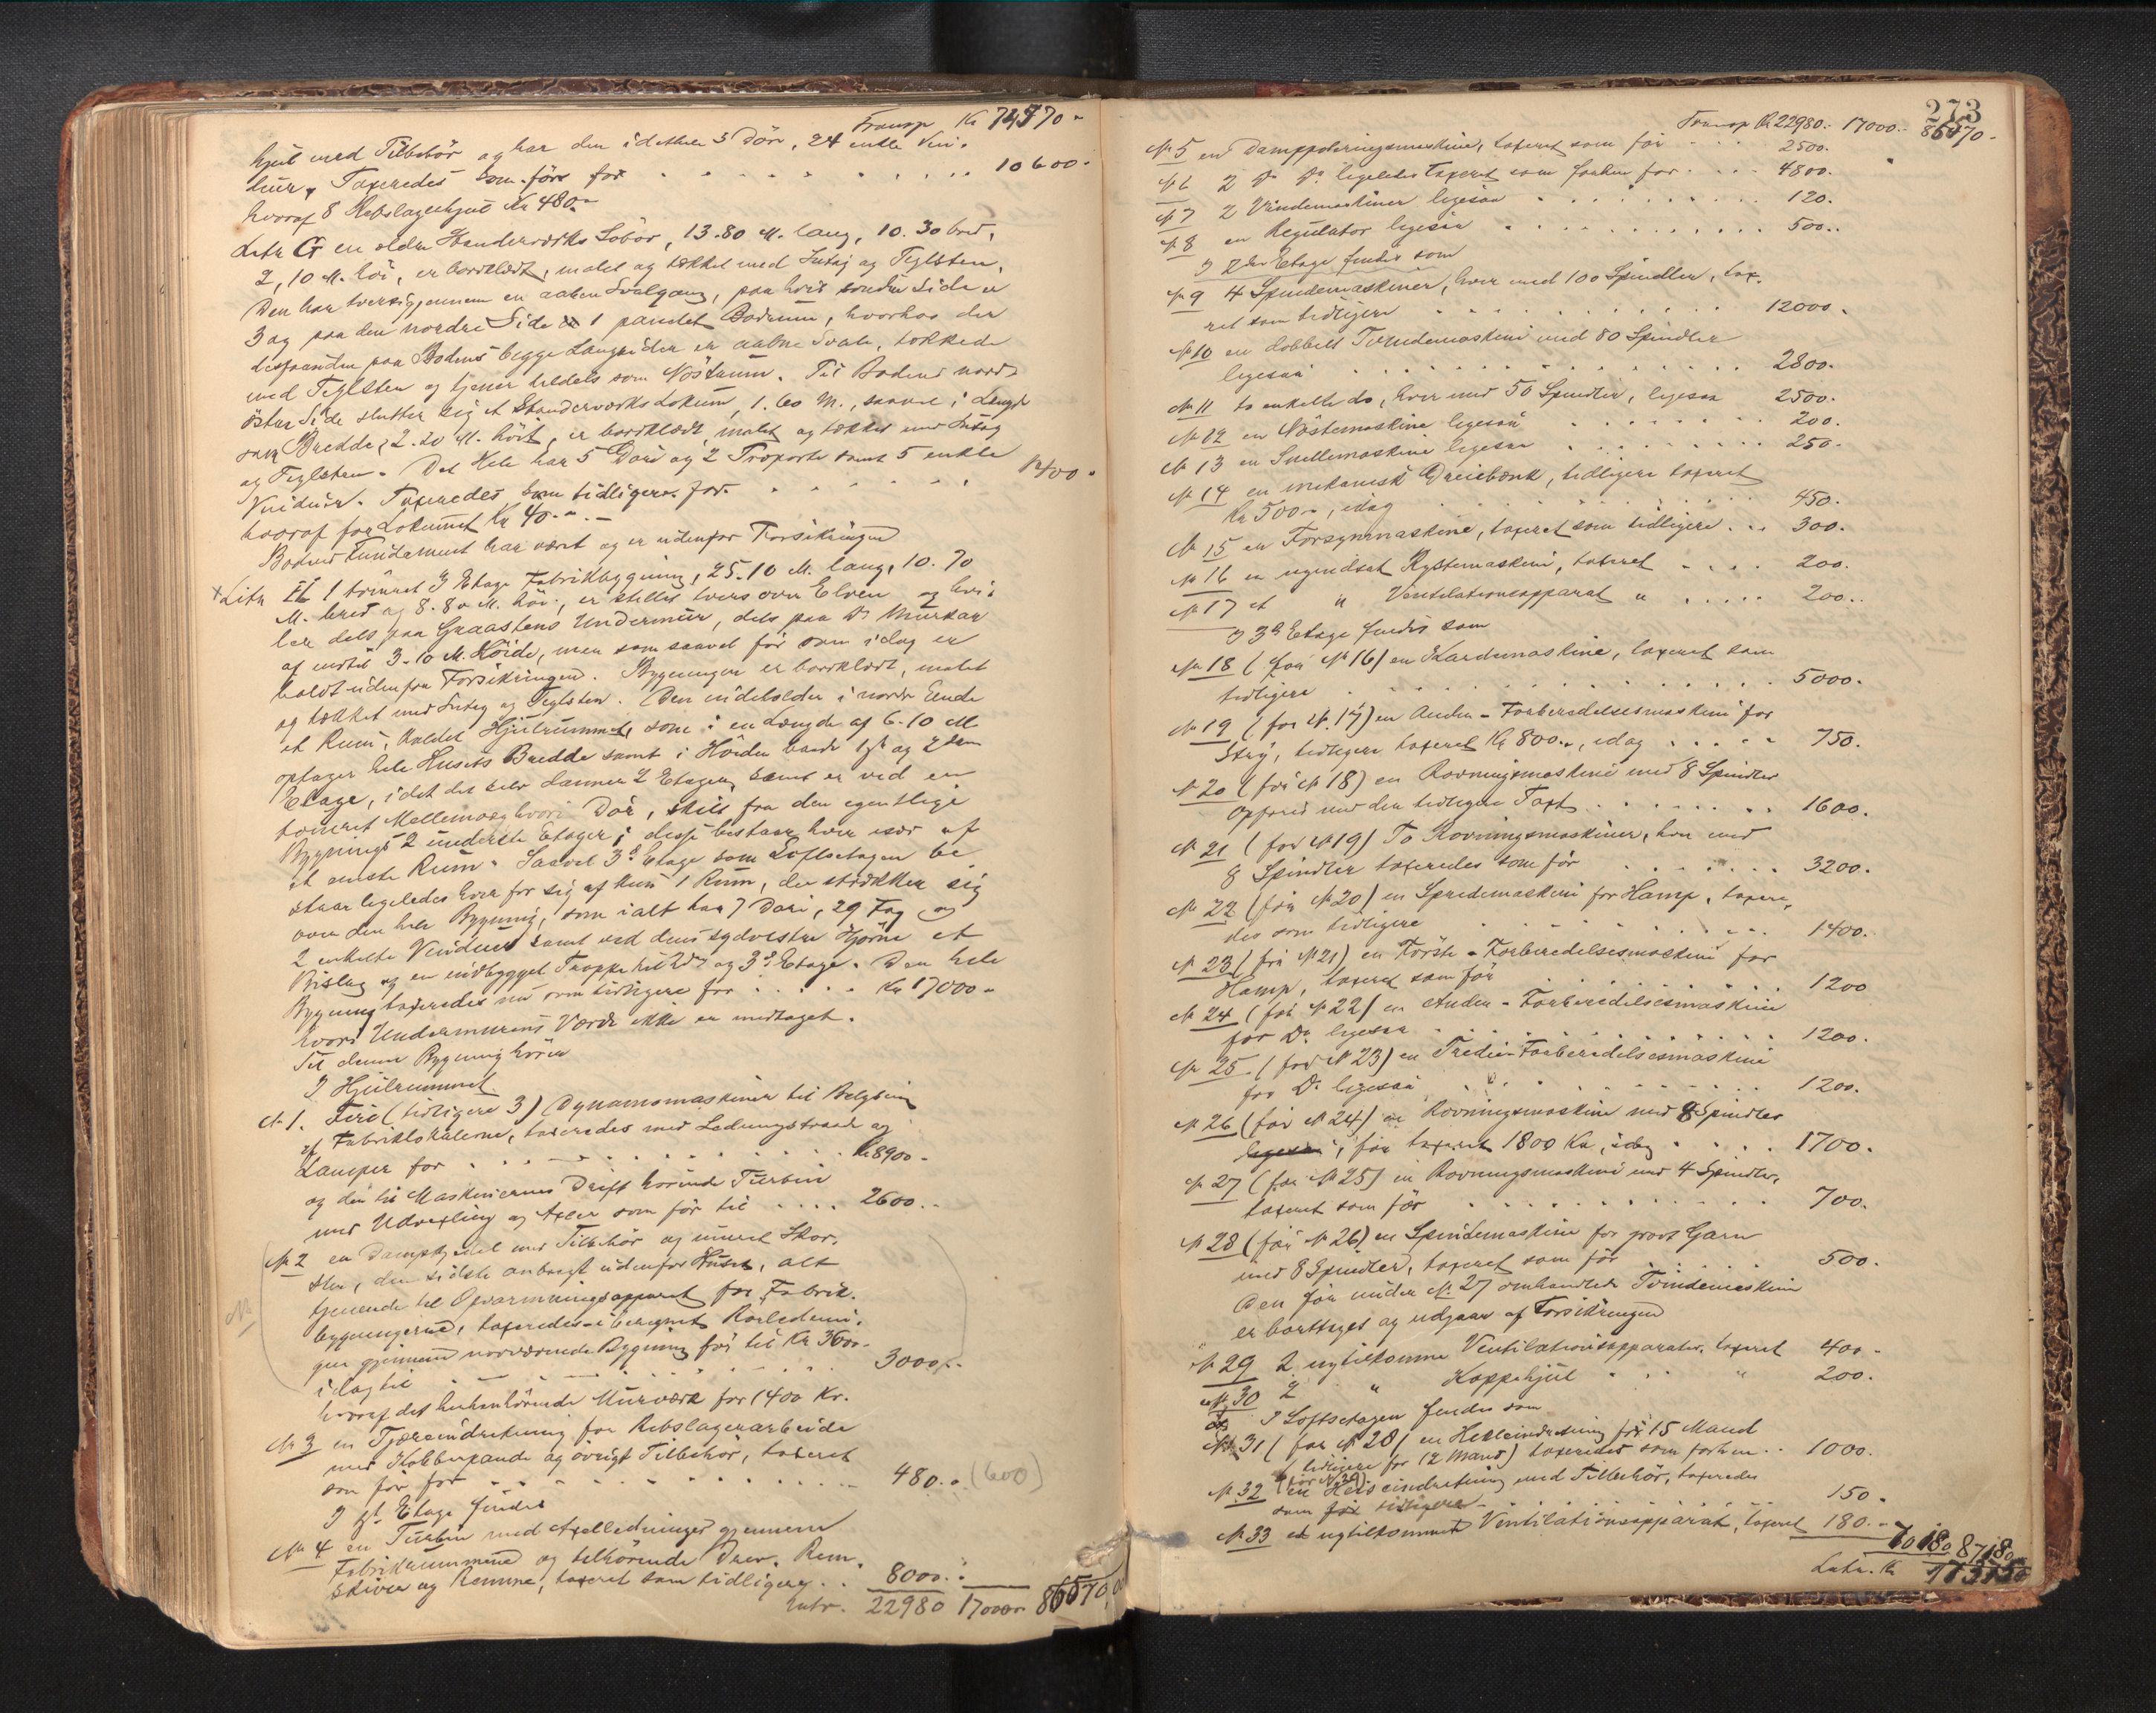 Transp Kr 74570 -
hjul med Tilbehör og har den idethele 3 Dör, 24 enkle Vin-
duer. Taxeredes som för for 10600 -
hvoraf 8 Rebslagerhjul Kr 480 -
Litr G en ældre Standerværks Söbod, 13.80 M. lang, 10.30 bred,
2,10 M. höi, er bordklædt, malet og tækket med Sutag og Teglsten.
Den har tversigjennem en aaben Svalgang, paa hvis söndre Side er
3 og paa den nordre Side 1 panelet Bodrum, hvorhos der
desforuden paa Bodens begge Langsider er aabne Svale, tækkede
med Teglsten og tjener tildels som Nöstrum. Til Bodens nord-
östre Side slutter sig et Standerværks Lokum, 1.60 M., saavel i Længde
som Bredde, 2.20 M. höit, er bordklædt, malet og tækket med Sutag
og Teglsten. Det Hele har 5 Döre og 2 Troporte samt 5 enkle
Vinduer. Taxeredes som tidligere for 1400 -
hvoraf for Lokumet Kr 40. -
Bodens Fundament har været og er udenfor Forsikringen
x Litr H 1 tömret 3 Etage Fabrikbygning, 25.10 M. lang, 10.70
M. bred og 8.80 M. höi, er stillet tvers over Elven og hvi-
ler dels paa Graastens Undermur, dels paa Do Murkar
af indtil 3.10 M. Höide, men som saavel för som idag er
holdt udenfor Forsikringen. Bygningen er bordklædt, malet
og tækket med Sutag og Teglsten. Den indeholder i nordre Ende
et Rum, kaldet Hjulrummet, som i en Længde af 6.10 M
optager hele Husets Bredde samt i Höiden baade 1ste og 2den
Etage, idet det selv danner 2 Etager, samt er ved en
tömret Mellemvæg hvori Dör, skilt fra den egentlige
Bygnings 2 underste Etager; disse bestaar hver især af
et eneste Rum. Saavel 3de Etage som Loftsetagen be-
staar ligeledes hver for sig af kun 1 Rum, der strækker sig
over den hele Bygning, som ialt har 7 Döre, 29 Fag og
2 enkelte Vinduer samt ved dens sydvestre Hjörne et
Bislag og en indbygget Trappe til 2den og 3de Etage. Den hele
Bygning taxeredes nu som tidligere for Kr 17000 -
hvori Undermurens Værdi ikke er medtaget.
Til denne Bygning hörer
I Hjulrummet.
No 1. Fire (tidligere 3) Dynamomaskiner til Belysning
af Fabriklokalerne, taxeredes med Ledningstraad og
Lamper for Kr 8900 -
og den til Maskinernes Drift hörende Turbin
med Udvexling og Axler som för til 2600. -
No 2 en Dampkjedel med Tilbehör og muret Skor-
sten, den sidste anbragt udenfor Huset, alt
tjenende til Opvarmningsapparat for Fabrik-
bygningerne, taxeredes iberegnet Rörlednin-
ger gjennem nærværende Bygning för til Kr 3600 -
idag til 3000. -
hvoraf det henhörende Murværk for 1400 Kr.
No 3 en Tjæreindretning for Rebslagerarbeide
med Kobberpande og övrigt Tilbehör, taxeret
som för for 480. - (600)
I 1st Etage findes
No 4 en Turbin med Axelledninger gjennem
Fabrikrummene og tilhörende Drev. Rem-
skiver og Remme, taxeret som tidligere 8000. -
Latr. 22980 17000 - 86570,00
273
Transp Kr 22980. - 17000. - 86570 -
No 5 en Damppoleringsmaskine, taxeret som för 2500.
No 6 2 Do Do ligeledes taxeret som forhen for 4800.
No 7 2 Vindemaskiner ligesaa 120.
No 8 en Regulator ligesaa 500. -
I 2den Etage findes som
No 9 4 Spindemaskiner, hver med 100 Spindler, tax-
ret som tidligere 12000.
No 10 en dobbelt Tvindemaskine med 80 Spindler
ligesaa 2800.
No 11 to enkelte do, hver med 50 Spindler, ligesaa 2500.
No 12 en Nöstemaskine ligesaa 200.
No 13 en Snellemaskine ligesaa 250.
No 14 en mekanisk Dreiebænk, tidligere taxeret
Kr 500 -, idag 450.
No 15 en Forsynmaskine, taxeret som tidligere 300.
No 16 en nyindsat Rystemaskine, taxeret 200.
No 17 et " Ventilationsapparat " 200. -
I 3de Etage findes som
No 18 (för No 16) en Kardemaskine, taxeret som
tidligere 5000.
No 19 (för No 17) en Anden-Forberedelsesmaskine for
Stry, tidligere taxeret Kr 800 -, idag 750.
No 20 (för No 18) en Rovningsmaskine med 8 Spindler
opföres med den tidligere Taxt 1600.
No 21 (för No 19) To Rovningsmaskiner, hver med
8 Spindler taxeredes som för 3200.
No 22 (för No 20) en Spredemaskine for Hamp, taxere-
des som tidligere 1400.
No 23 (för No 21) en Förste-Forberedelsesmaskine for
Hamp, taxeret som för 1200
No 24 (för No 22) en Anden-Forberedelsesmaskine
for Do ligesaa 1200.
No 25 (för No 23) en Tredie-Forberedelsesmaskine
for Do ligesaa 1200.
No 26 (för No 24) en Rovningsmaskine med 8 Spindler
ligesaa, för taxeret 1800 Kr, idag 1700.
No 27 (för No 25) en Rovningsmaskine med 4 Spindler,
taxeret som för 700.
No 28 (för No 26) en Spindemaskine for grovt Garn
med 8 Spindler, taxeret som för 500.
Den för under No 27 omhandlede Tvindemaskine
er borttaget og udgaar af Forsikringen
No 29 2 nytilkomne Ventilationsapparater, taxeret 400 -
No 30 2 " Koppehjul " 200.
I Loftsetagen findes som
No 31 (för No 28) en Hekleindretning for 15 Mand
(tidligere for 12 Mand) taxeredes som forhen 1000.
No 32 (för No 30) en Heiseindretning med Tilbehör, taxeredes
som för tidligere 150 -
No 33 et nytilkommet Ventilationsapparat, taxeret 180. -
70180 87180
Latr. Kr 173750